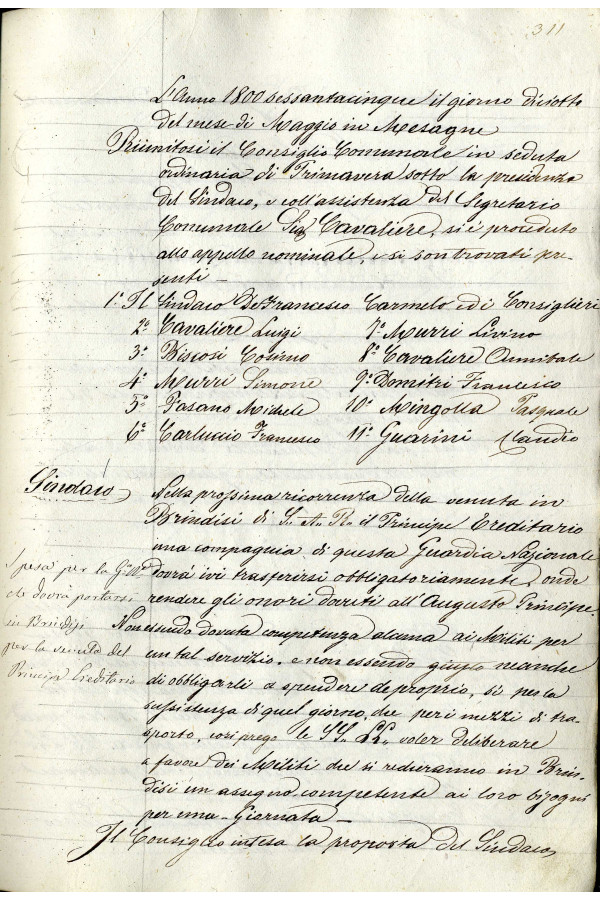 311
L'Anno 1800 sessantacinque il giorno diciotto
del mese di Maggio in Mesagne
Riunitosi il Consiglio Comunale in seduta
ordinaria di Primavera sotto la presidenza
del Sindaco, e coll'assistenza del Segretario
Comunale Sig.r Cavaliere, si è proceduto
allo appello nominale, e si son trovati pre-
senti —
1° Il Sindaco De Francesco Carmelo ed i Consiglieri
2° Cavaliere Luigi 7° Murri Livino
3° Biscosi Cosimo 8° Cavaliere Annibale
4° Murri Simone 9° Domitri Francesco
5° Pasano Michele 10° Mingolla Pasquale
6° Carluccio Francesco 11° Guarini Claudio
Sindaco
Nella prossima ricorrenza della venuta in
Brindisi di S. A. R. il Principe Ereditario
una compagnia di questa Guardia Nazionale
dovrà ivi trasferirsi obbligatoriamente, onde
rendere gli onori dovuti all'Augusto Principe.
Spesa per la G. N.
che dovrà portarsi
in Brindisi
per la venuta del
Principe Ereditario
Non essendo dovuta competenza alcuna ai Militi per
un tal servizio, e non essendo giusto neanche
di obbligarli a spendere de proprio, sì per la
sussistenza di quel giorno, che per i mezzi di tra-
sporto, così prego le SS. LL. voler deliberare
a favore dei Militi che si recheranno in Brin-
disi un assegno competente ai loro bisogni
per una Giornata —
Il Consiglio intesa la proposta del Sindaco